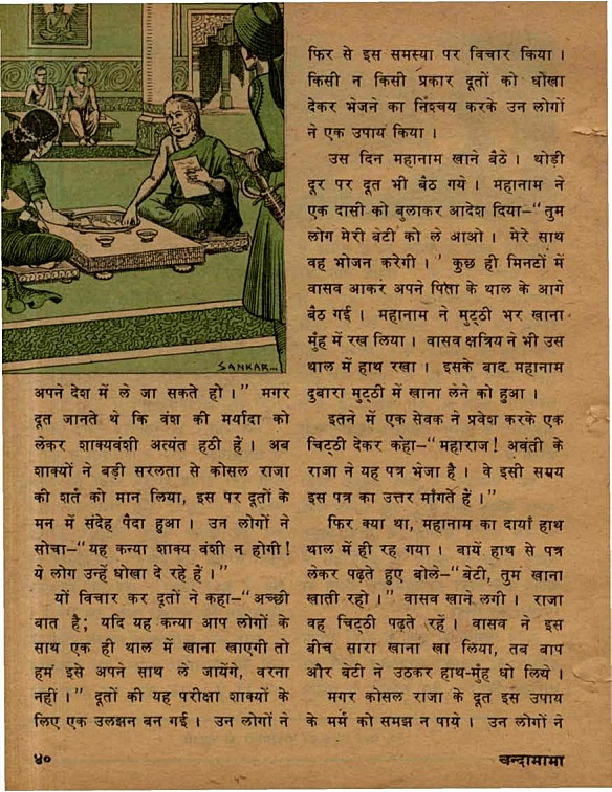 SANKAR...
अपने देश में ले जा सकते हो।” मगर
दूत जानते थे कि वंश की मर्यादा को
लेकर शाक्यवंशी अत्यंत हठी हैं। अब
शाक्यों ने बड़ी सरलता से कोसल राजा
की शर्त को मान लिया, इस पर दूतों के
मन में संदेह पैदा हुआ। उन लोगों ने
सोचा-“यह कन्या शाक्य वंशी न होगी!
ये लोग उन्हें धोखा दे रहे हैं।”
यों विचार कर दूतों ने कहा-“अच्छी
बात है; यदि यह कन्या आप लोगों के
साथ एक ही थाल में खाना खाएगी तो
हम इसे अपने साथ ले जायेंगे, वरना
नहीं।” दूतों की यह परीक्षा शाक्यों के
लिए एक उलझन बन गई। उन लोगों ने
फिर से इस समस्या पर विचार किया।
किसी न किसी प्रकार दूतों को धोखा
देकर भेजने का निश्चय करके उन लोगों
ने एक उपाय किया।
उस दिन महानाम खाने बैठे। थोड़ी
दूर पर दूत भी बैठ गये। महानाम ने
एक दासी को बुलाकर आदेश दिया-“तुम
लोग मेरी बेटी को ले आओ। मेरे साथ
वह भोजन करेगी।' कुछ ही मिनटों में
वासव आकर अपने पिता के थाल के आगे
बैठ गई। महानाम ने मुट्ठी भर खाना
मुँह में रख लिया। वासव क्षत्रिय ने भी उस
थाल में हाथ रखा। इसके बाद महानाम
दुबारा मुट्ठी में खाना लेने को हुआ।
इतने में एक सेवक ने प्रवेश करके एक
चिट्ठी देकर कहा-“महाराज! अवंती के
राजा ने यह पत्र भेजा है। वे इसी समय
इस पत्र का उत्तर माँगते हैं।”
फिर क्या था, महानाम का दायाँ हाथ
थाल में ही रह गया। बायें हाथ से पत्र
लेकर पढ़ते हुए बोले-“बेटी, तुम खाना
खाती रहो।” वासव खाने लगी। राजा
वह चिट्ठी पढ़ते रहें। वासव ने इस
बीच सारा खाना खा लिया, तब बाप
और बेटी ने उठकर हाथ-मुँह धो लिये।
मगर कोसल राजा के दूत इस उपाय
के मर्म को समझ न पाये। उन लोगों ने
४०
चन्दामामा